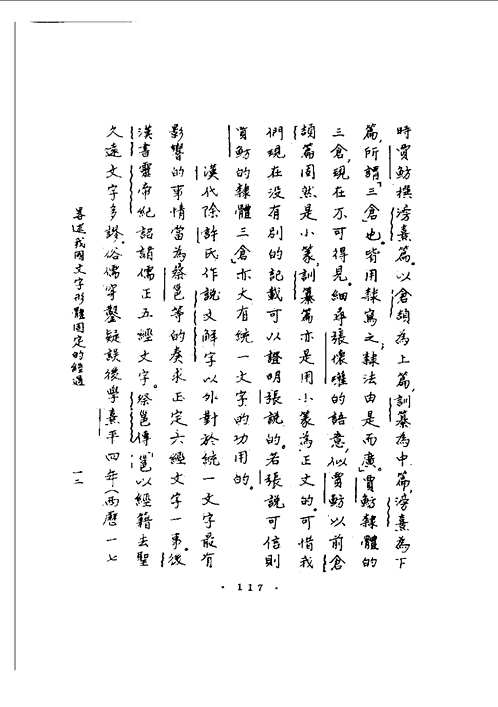 時賈魴撰滂熹篇。以倉頡為上篇,訓纂為中篇,滂熹為下
篇,所謂「三倉」也。皆用隸寫之;隸法由是而廣。」賈魴隸體的
三倉,現在亦可得見。細尋張懷瓘的語意,似賈魴以前倉
頡篇固然是小篆,訓纂篇亦是用小篆為正文的。可惜我
們現在沒有別的記載可以證明張說的。若張說可信,則
賈魴的隸體「三倉」亦大有統一文字的功用的。
漢代除許氏作說文解字以外,對於統一文字最有
影響的事情當為蔡邕等的奏求正定六經文字一事。後
漢書靈帝紀詔諸儒正五經文字。蔡邕傳:邕以經籍去聖
久遠,文字多謬,俗儒穿鑿,疑誤後學,熹平四年(西曆一七
畧述我國文字形體固定的經過
一二
· 117 ·